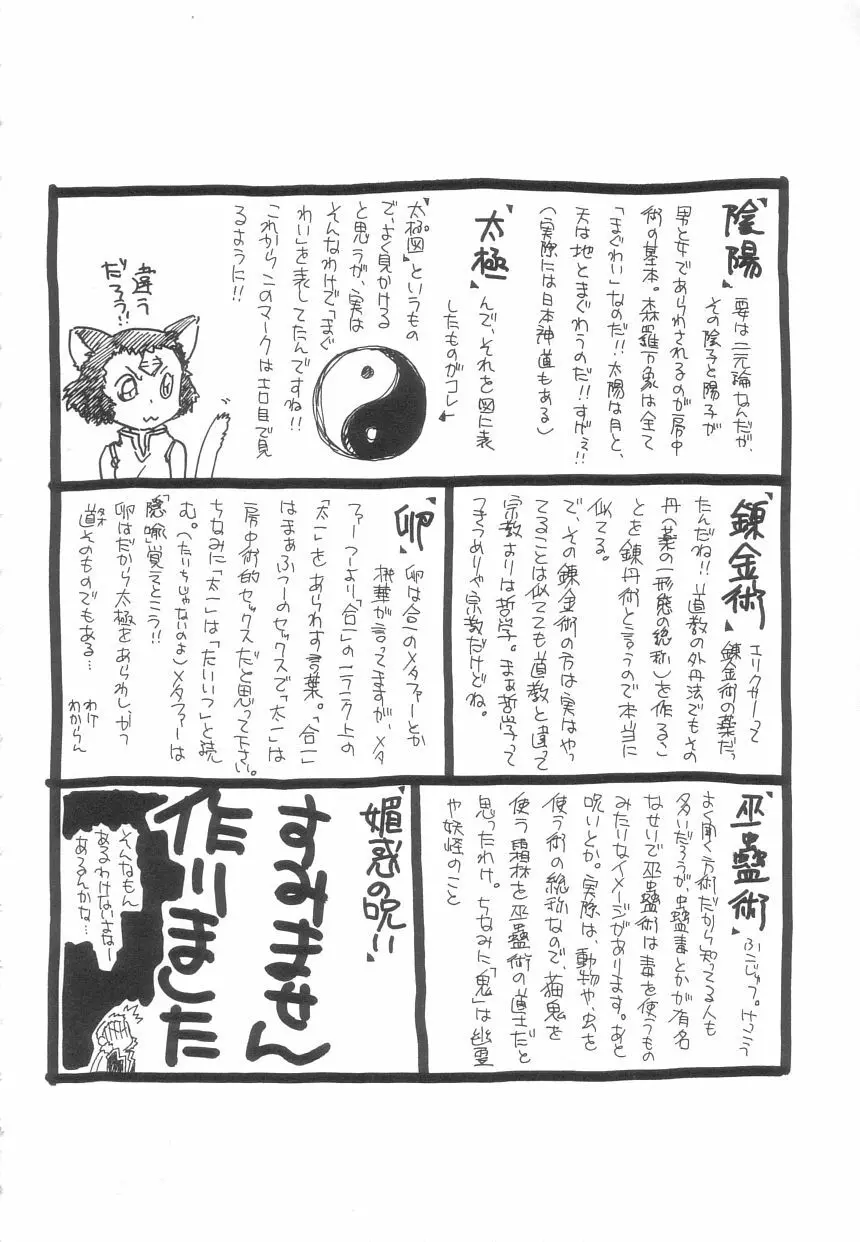 陰陽
要は二元論なんだが、
その陰子と陽子が
男と女であらわされるのが房中
術の基本。森羅万象は全て
「まぐわい」なのだ!!太陽は月と、
天は地とまぐわうのだ!!すげぇ!!
(実際には日本神道もある)
太極
んで、それを図に表
したものがコレ
「太極図」というもの
で、よく見かける
と思うが、実は
そんなわけで「まぐ
わい」を表してたんですね!!
これからこのマークはエロ目で見
るように!!
違う
だろう!!
錬金術
エリクサーって
錬金術の薬だっ
たんだね!!道教の外丹法でもその
丹(薬の一形態の総称)を作るこ
とを錬丹術と言うので本当に
似てる。
で、その錬金術の方は実はやっ
てることは似てても道教と違って
宗教よりは哲学。まぁ哲学って
つきつめりゃ宗教だけどね。
卵
卵は合一のメタファーとか
桃華が言ってますが、メタ
ファーつーより「合一」の一ランク上の
「太一」をあらわす言葉。「合一」
はまぁふつーのセックスで、「太一」は
房中術的セックスだと思って下さい。
ちなみに「太一」は「たいいつ」と読
む。(たいちじゃないのよ)メタファーは
「隠喩」覚えとこう!!
卵はだから太極をあらわしかつ
道そのものでもある…
わけ
わからん
巫蠱術
ふこじゅつ。けっこう
よく聞く方術だから知ってる人も
多いだろうが、虫蠱毒とかが有名
なせいで巫蠱術は毒を使うもの
みたいなイメージがあります。あと
呪いとか。実際は、動物や、虫を
使う術の総称なので、猫鬼を
使う霜林を巫蠱術の道士だと
思ったわけ。ちなみに「鬼」は幽霊
や妖怪のこと
媚惑の呪!!
すみません
作りました
そんなもん
あるわけないさなー
あるんかな…